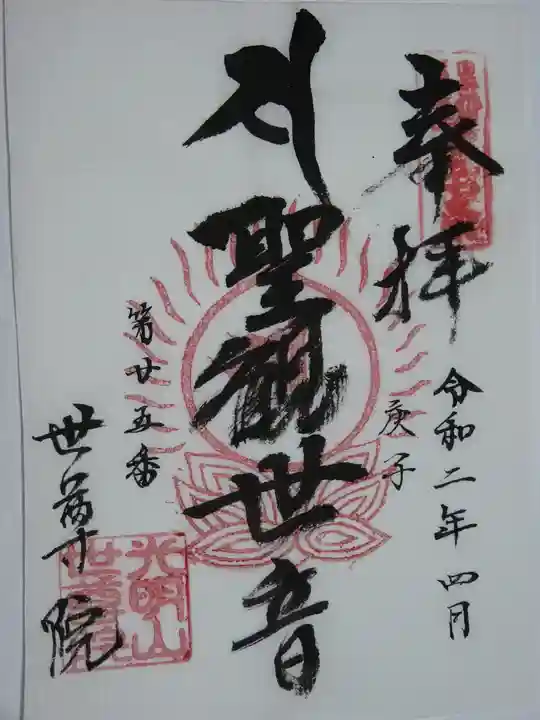 奉拝
令和二年四月
庚子
聖観世音
第廿五番
世尊院
光明山
世尊院